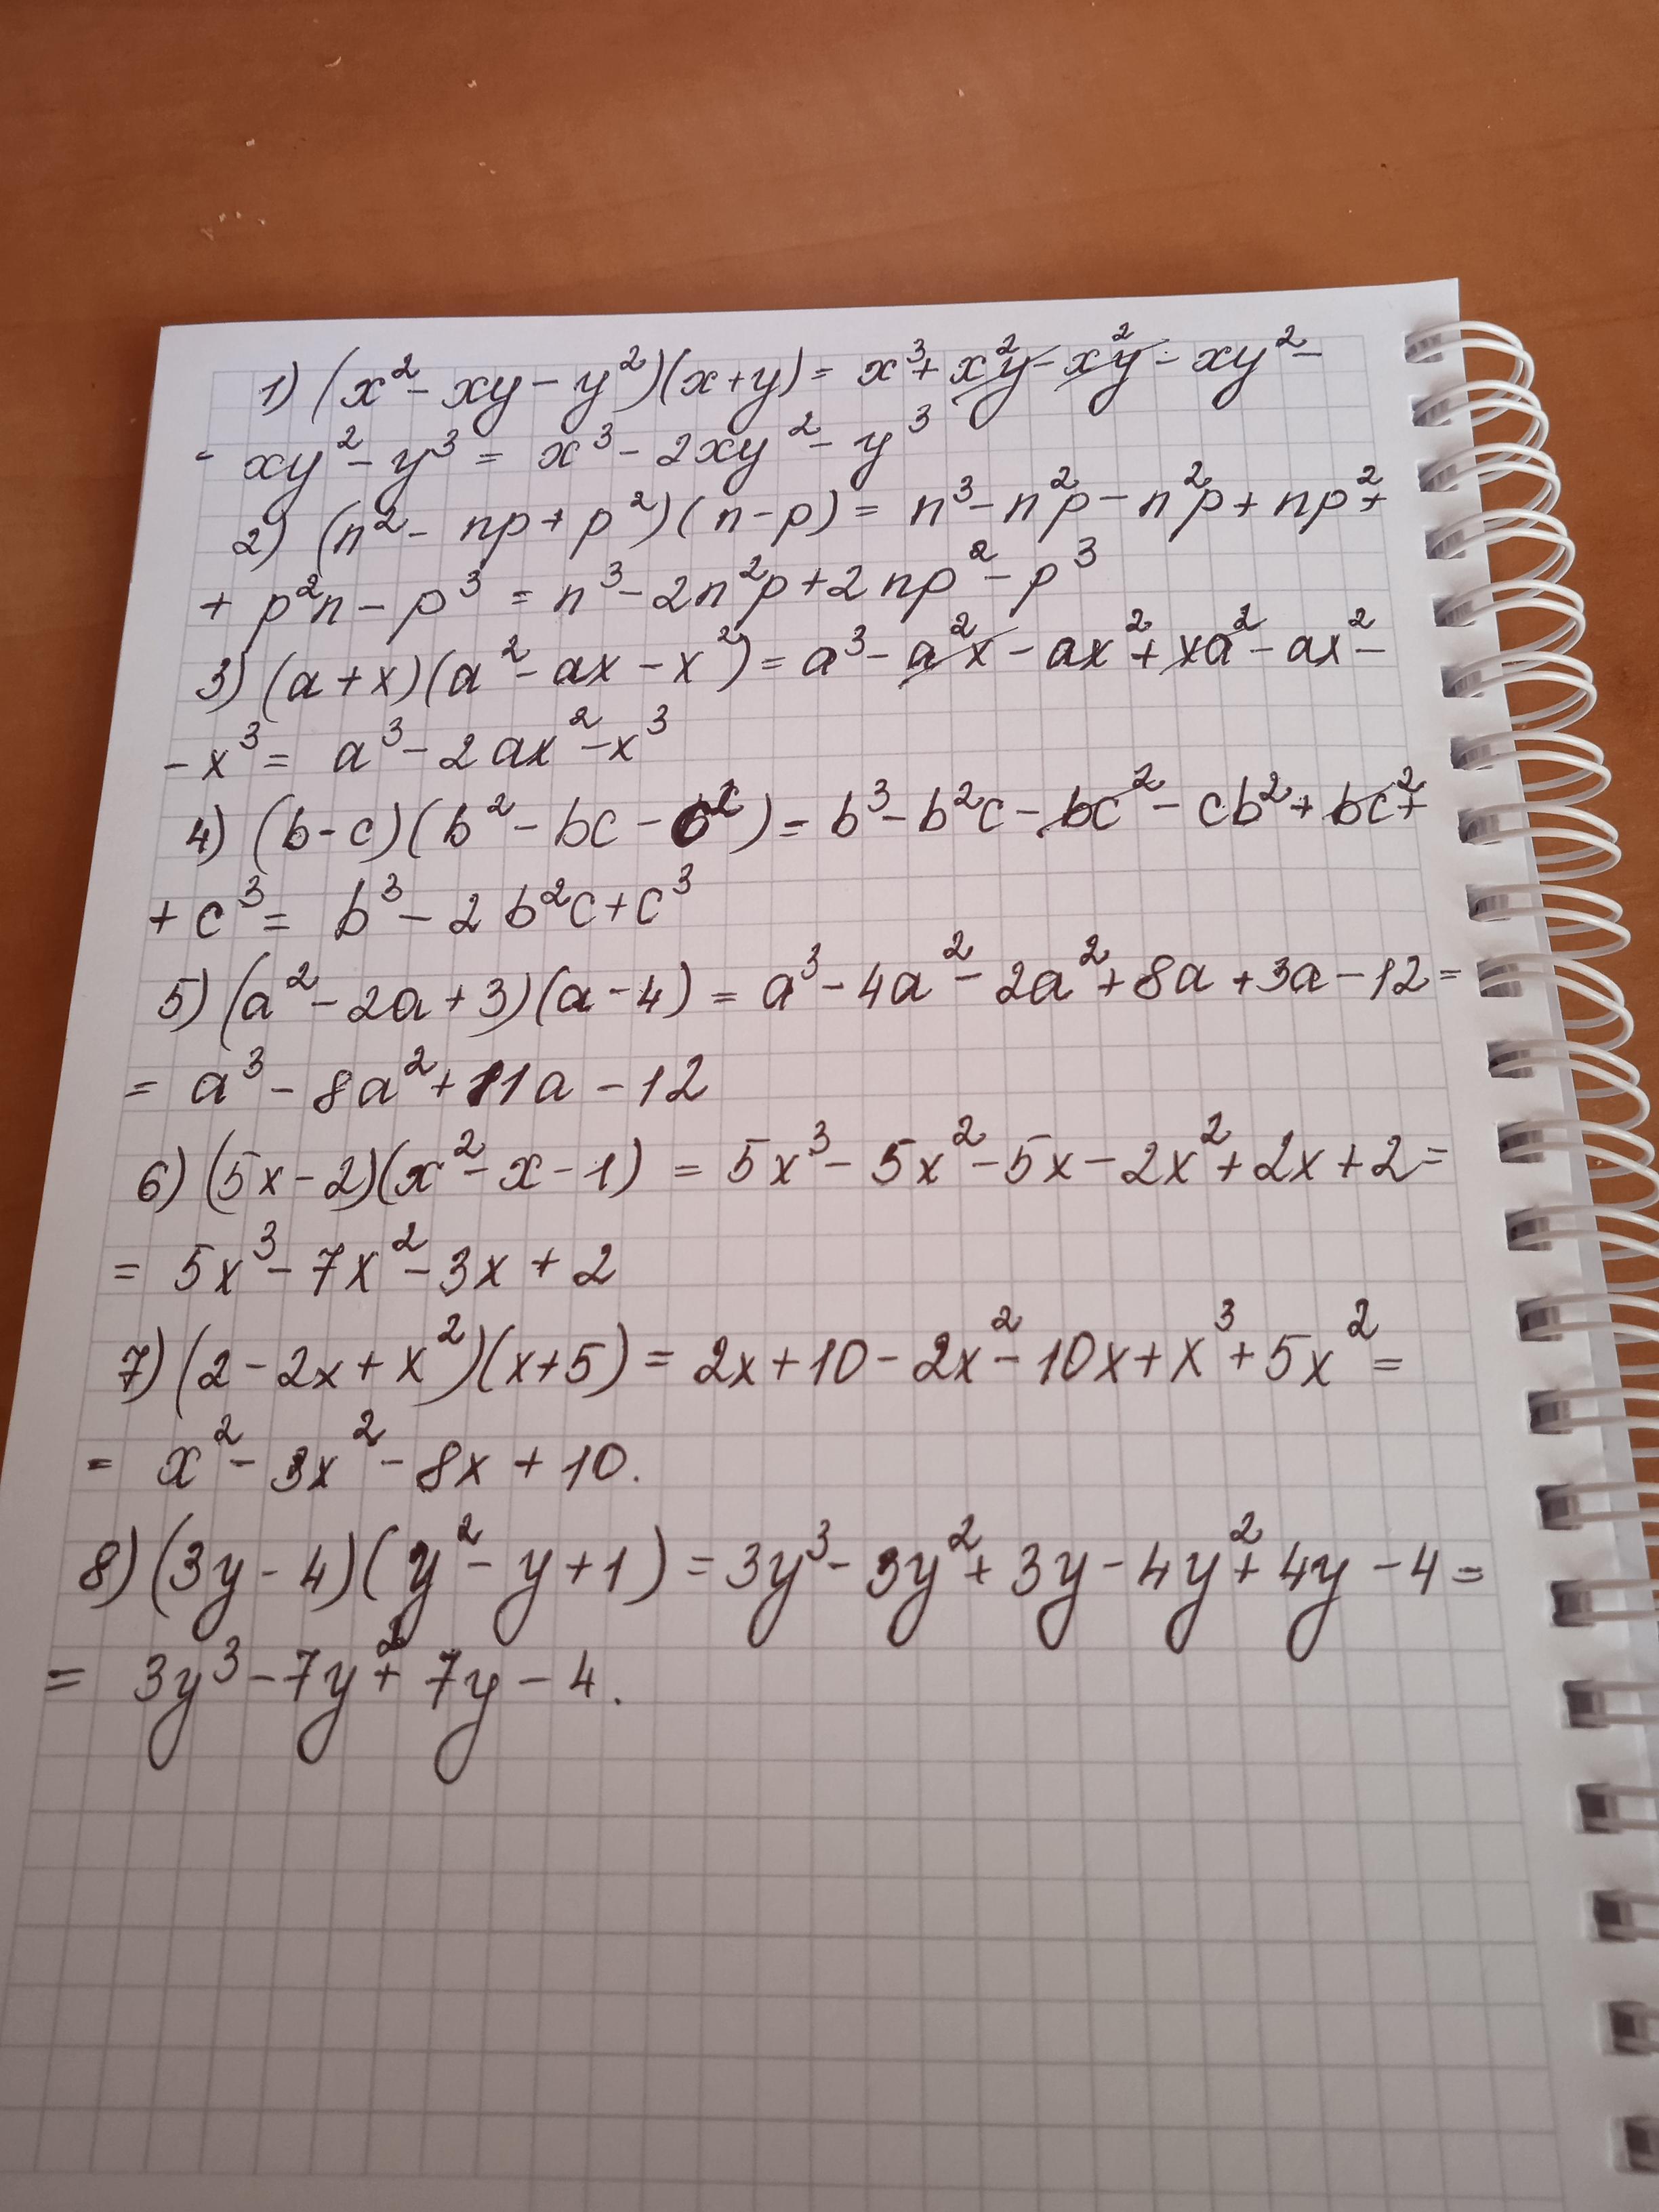 1) (x² - xy - y²)(x+y) = x³ + x²y - x²y - xy² -
- xy² - y³ = x³ - 2xy² - y³
2) (n² - np + p²)(n - p) = n³ - n²p - n²p + np² +
+ p²n - p³ = n³ - 2n²p + 2np² - p³
3) (a + x)(a² - ax - x²) = a³ - a²x - ax² + xa² - ax² -
- x³ = a³ - 2ax² - x³
4) (b - c)(b² - bc - c²) = b³ - b²c - bc² - cb² + bc² +
+ c³ = b³ - 2b²c + c³
5) (a² - 2a + 3)(a - 4) = a³ - 4a² - 2a² + 8a + 3a - 12 =
= a³ - 8a² + 11a - 12
6) (5x - 2)(x² - x - 1) = 5x³ - 5x² - 5x - 2x² + 2x + 2 =
= 5x³ - 7x² - 3x + 2
7) (2 - 2x + x²)(x + 5) = 2x + 10 - 2x² - 10x + x³ + 5x² =
= x² - 3x² - 8x + 10.
8) (3y - 4)(y² - y + 1) = 3y³ - 3y² + 3y - 4y² + 4y - 4 =
= 3y³ - 7y² + 7y - 4.